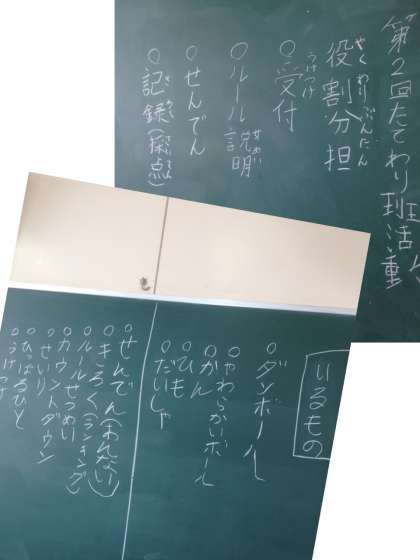 第2回たてわり班活動
やくわりぶんたん
役割分担
うけつけ
○受付
せつめい
○ルール説明
○せんでん
○記録(採点)
いるもの
○ダンボール
○やわらかいボール
○かん
○ひも
○だいしゃ
○せんでん(あんない)
○きろく(ランキング)
○ルールせつめい
○カウントダウン
○せいり
○ひっぱるひと
○うけつけ